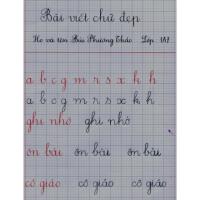 Bài viết chữ đẹp
Họ và tên Bùi Phương Thảo Lớp 1A2
a b c g m r s x k h
a b c g m r s x k h
ghi nhớ ghi nhớ
ôn bài ôn bài ôn bài
cô giáo cô giáo cô giáo